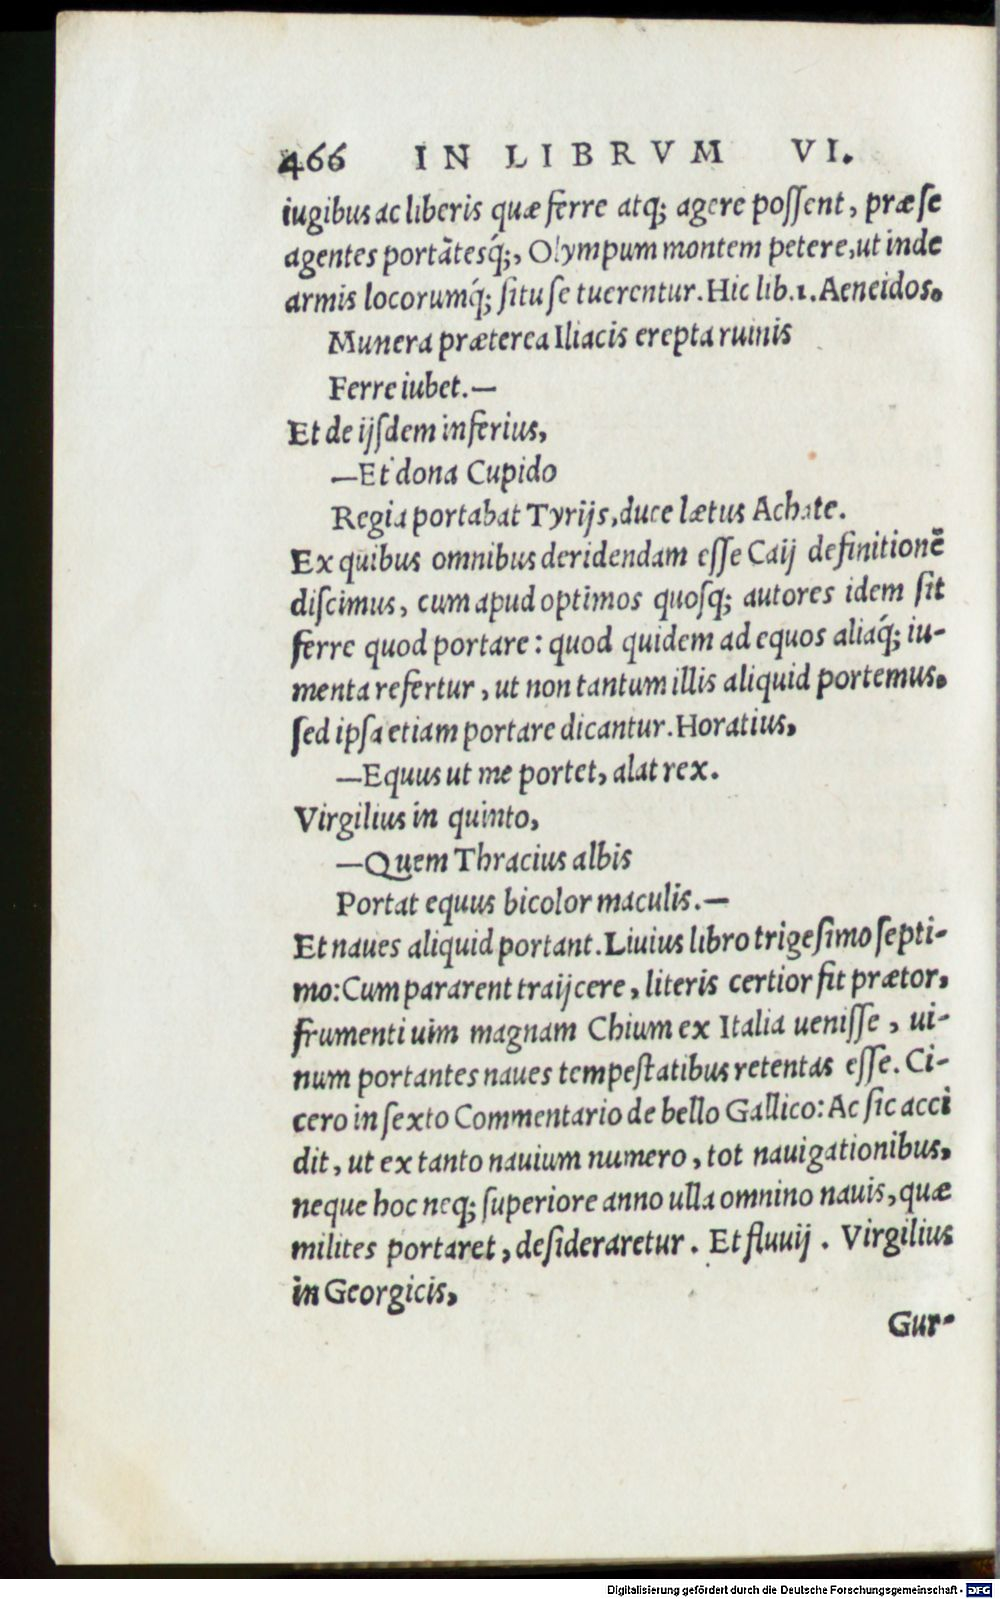 466 IN LIBRVM VI.
iugibus ac liberis quæ ferre atq; agere possent, præ se
agentes portãtesq́;, Olympum montem petere, ut inde
armis locorumq́; situ se tuerentur. Hic lib. 1. Aeneidos.
Munera præterea Iliacis erepta ruinis
Ferre iubet.—
Et de ijsdem inferius,
—Et dona Cupido
Regia portabat Tyrijs, duce lætus Achate.
Ex quibus omnibus deridendam esse Caij definitionẽ
discimus, cum apud optimos quosq; autores idem sit
ferre quod portare: quod quidem ad equos aliaq́; iu-
menta refertur, ut non tantum illis aliquid portemus.
sed ipsa etiam portare dicantur. Horatius,
—Equus ut me portet, alat rex.
Virgilius in quinto,
—Quem Thracius albis
Portat equus bicolor maculis.—
Et naues aliquid portant. Liuius libro trigesimo septi-
mo: Cum pararent traijcere, literis certior fit prætor,
frumenti uim magnam Chium ex Italia uenisse, ui-
num portantes naues tempestatibus retentas esse. Ci-
cero in sexto Commentario de bello Gallico: Ac sic acci
dit, ut ex tanto nauium numero, tot nauigationibus,
neque hoc neq; superiore anno ulla omnino nauis, quæ
milites portaret, desideraretur. Et fluuij. Virgilius
in Georgicis,
Gur-
Digitalisierung gefördert durch die Deutsche Forschungsgemeinschaft - DFG